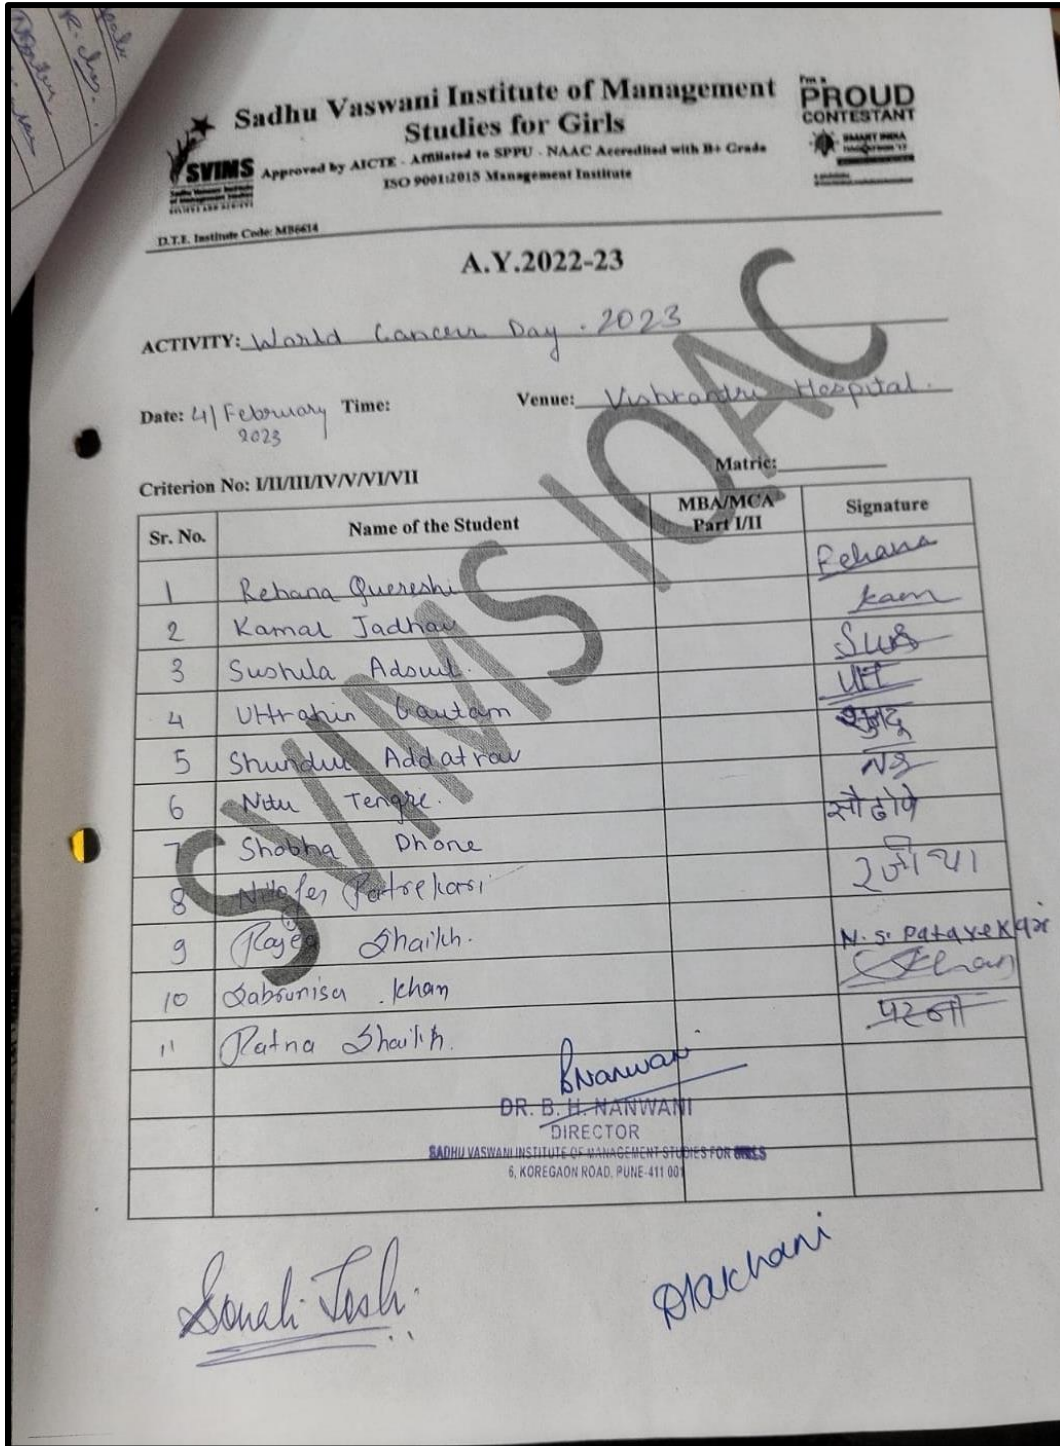 Sadhu Vaswani Institute of Management
Studies for Girls
Approved by AICTE - Affiliated to SPPU - NAAC Accredited with B+ Grade
ISO 9001:2015 Management Institute
SVIMS
I'm a
PROUD
CONTESTANT
D.T.E. Institute Code: MB6614
A.Y.2022-23
ACTIVITY: World Cancer Day . 2023
Date: 4/February Time: Venue: Hospital.
2023
Criterion No: I/II/III/IV/V/VI/VII Matric:
Sr. No. Name of the Student MBA/MCA Part I/II Signature
1 Rehana Quereshi Rehana
2 Kamal Jadhav kam
3 Sushila Sus
4 Gautam Utt
5
6 Nitu Tengre.
7 Shobha Dhone
8 Nilofer Patrekari रजीया
9 Shaikh. N.S. Patavekari
10 Sabrunisa . Khan Khan
11 Ratna Shaikh.
SVIMS IQAC
BNanwani
DR. B. H. NANWANI
DIRECTOR
SADHU VASWANI INSTITUTE OF MANAGEMENT STUDIES FOR GIRLS
6, KOREGAON ROAD, PUNE-411 001
Sonali Joshi